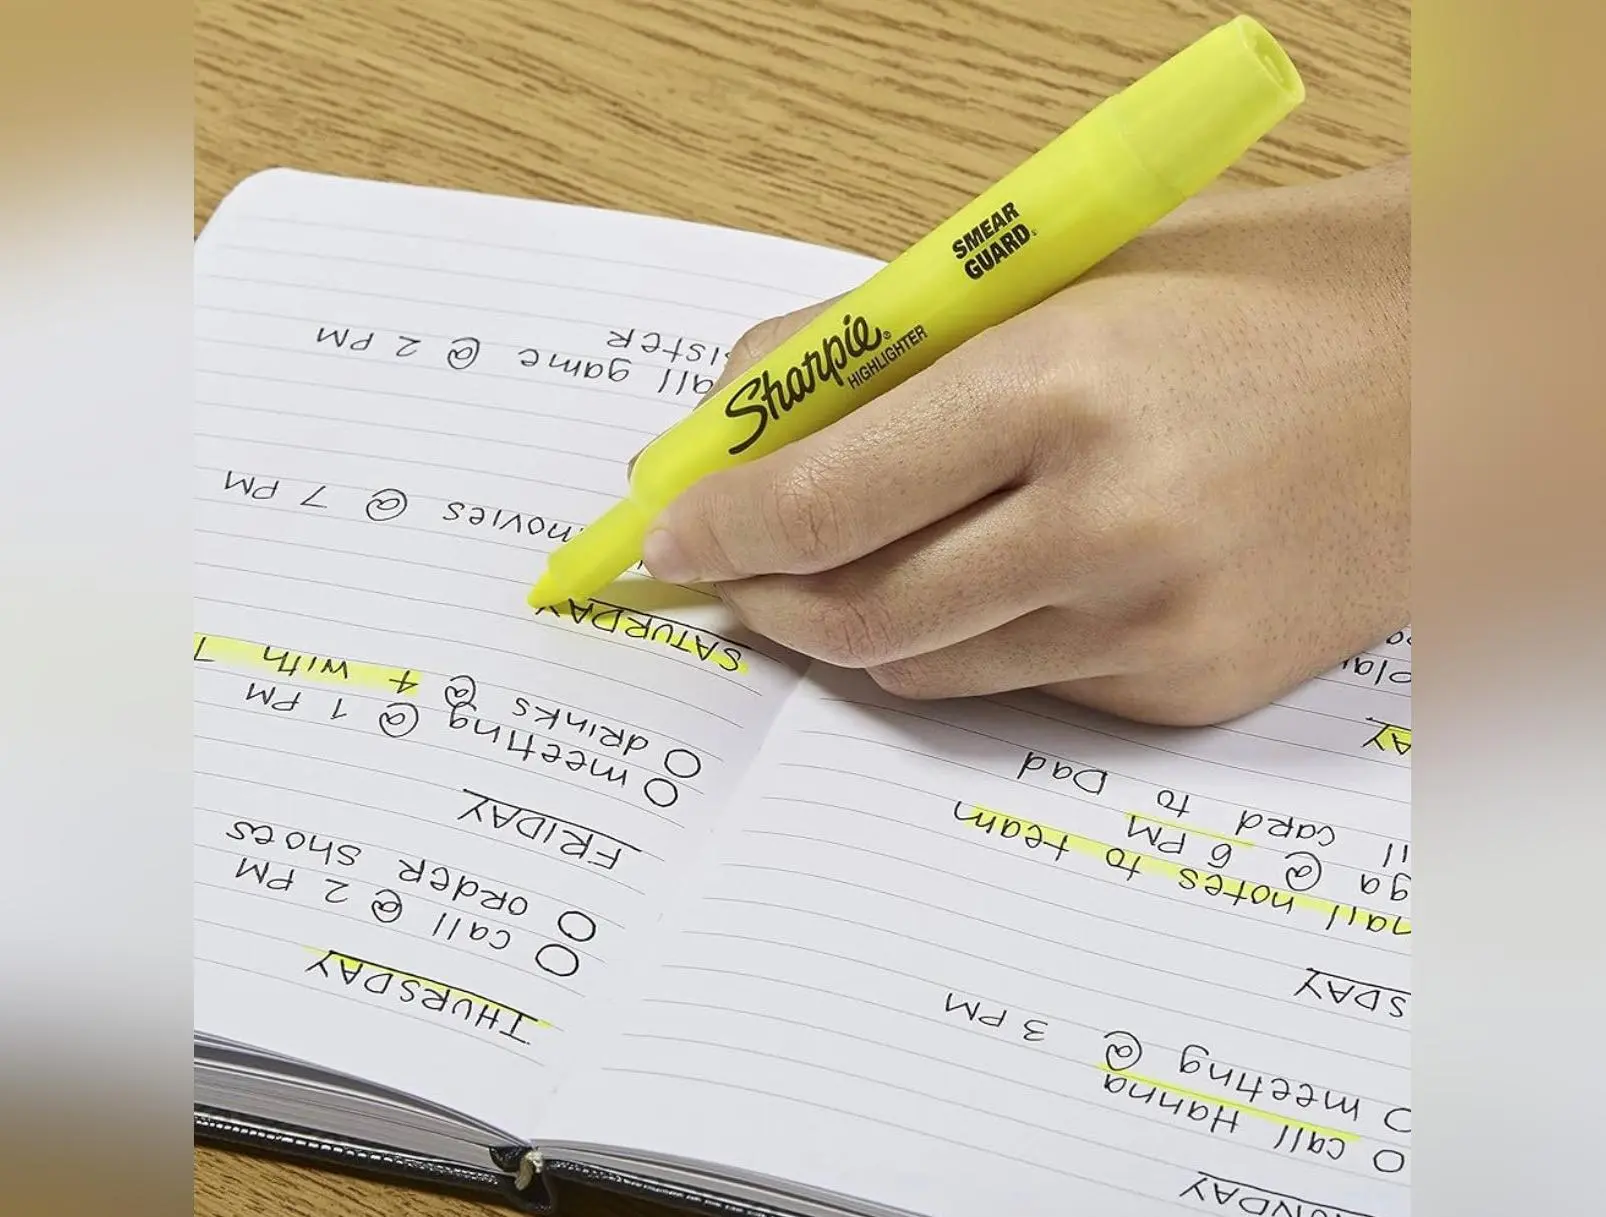 Sharpie®
HIGHLIGHTER
SMEAR
GUARD®
ONDAY
call Hanna
meeting @ 3 PM
SDAY
notes to team
@ 6 PM
card to Dad
AY
THURSDAY
call @ 2 PM
order shoes
FRIDAY
meeting @ 1 PM
drinks @ 4 with
SATURDAY
movies @ 7 PM
all game @ 2 PM
sister